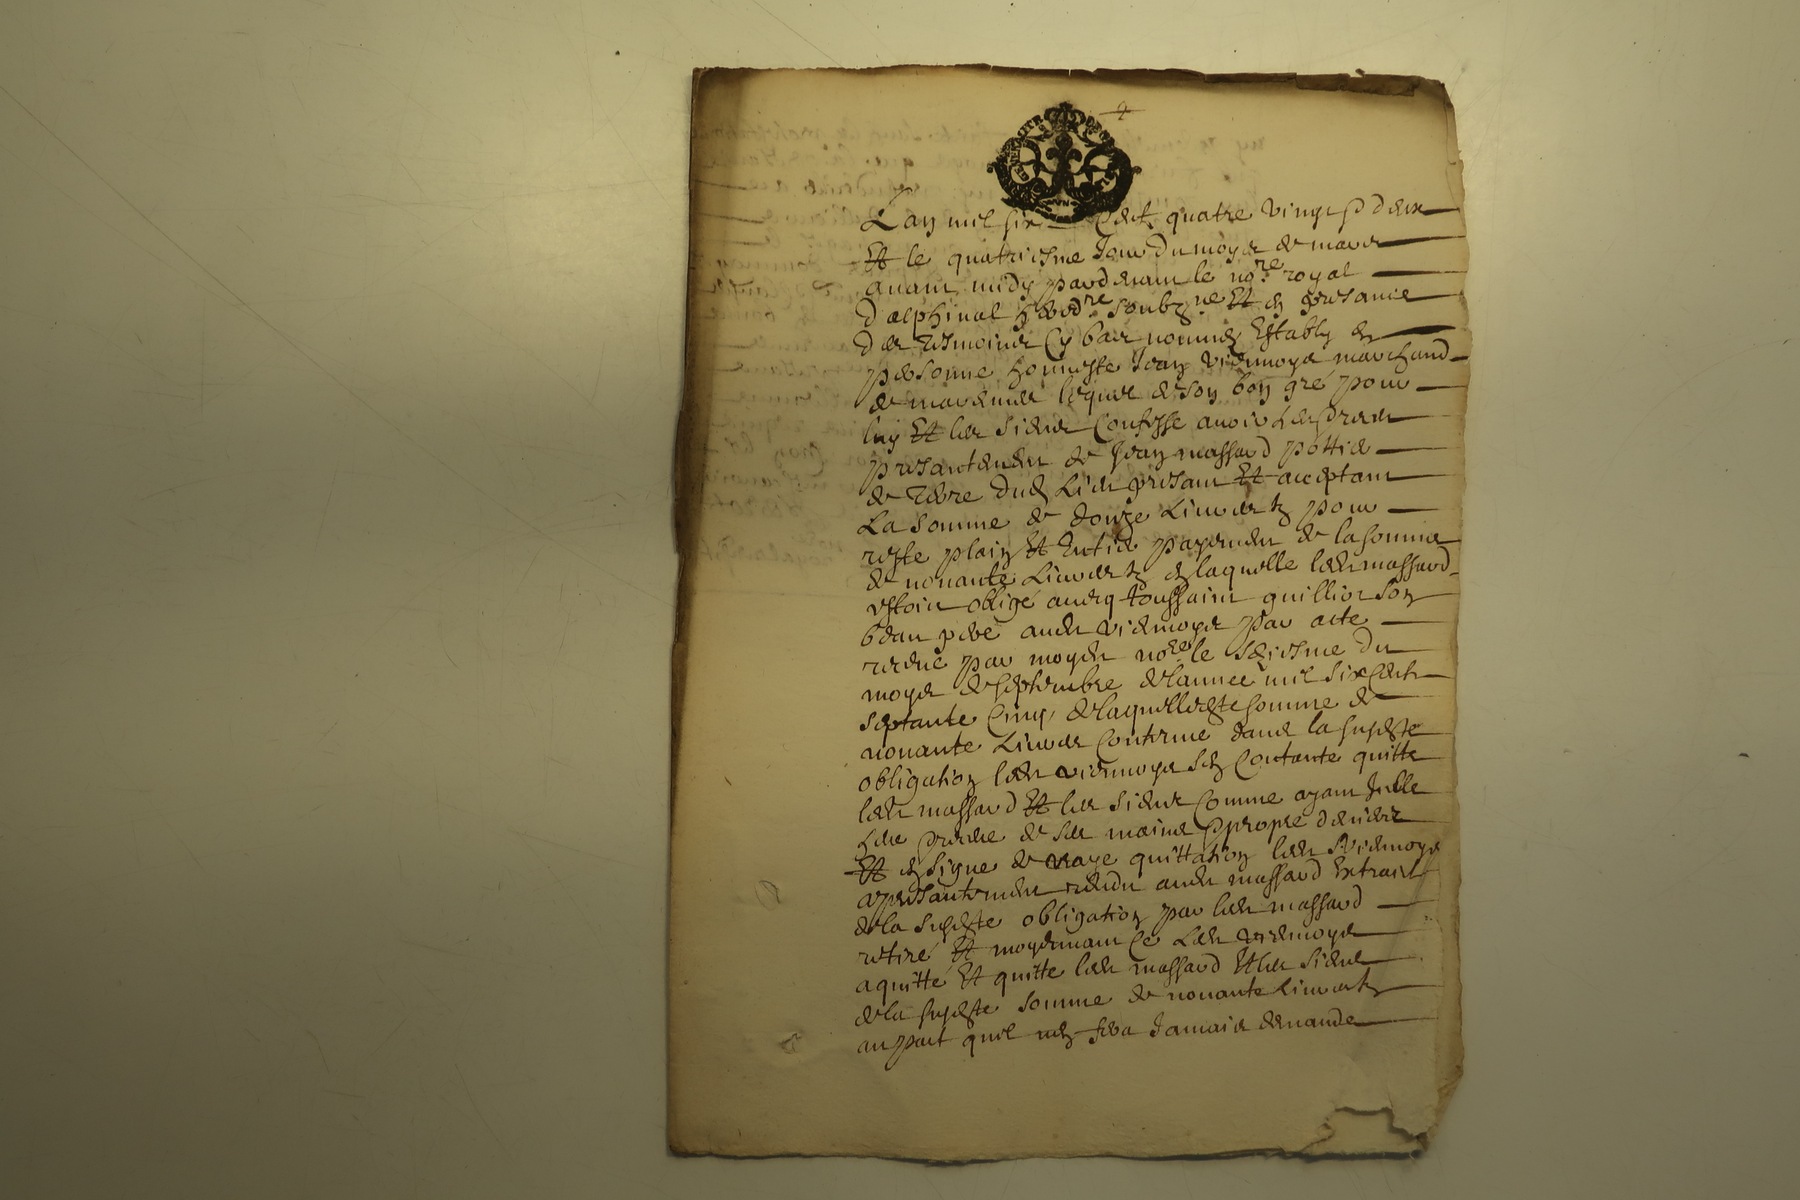 Lan mil six Cent quatre vingt deux
Et le quatriesme Jour du moys de mars
auant midy pardeuant le no.re royal
dalphinal hered.re soubz.ne Et en presance
des tesmoins Cy bas nommes Estably en
personne honneste Jean viennoys marchand
de lequel de son bon gré pour
luy Et les siens Confesse auoir
presantement de Jean massard pottie
de terre dud presant Et acceptant
La somme de douze Liures tz pour
reste plain Et Entie payement de la somme
de nonante Liures tz en laquelle led massard
estoit obligé auecq toussaint quillion son
beau pere aud viennoys par acte
receue par moyd no.re le du
moys de septembre de lannee mil six Cent
septante Cinq de laquelle somme de
nonante Liures Contenue dans la susd.te
obligation led viennoys sen Contante quitte
led massard Et les siens Comme ayant Jcelle
de ses mains propre
Et en signe de vraye quittation led viennoys
a presantement rendu aud massard Extrait
de la susd.te obligation par led massard
retiré Et moyennant Ce Led viennoys
a quitté Et quitte led massard Et les siens
de la susd.te somme de nonante Liures tz
au pact quil nen fera Jamais demande